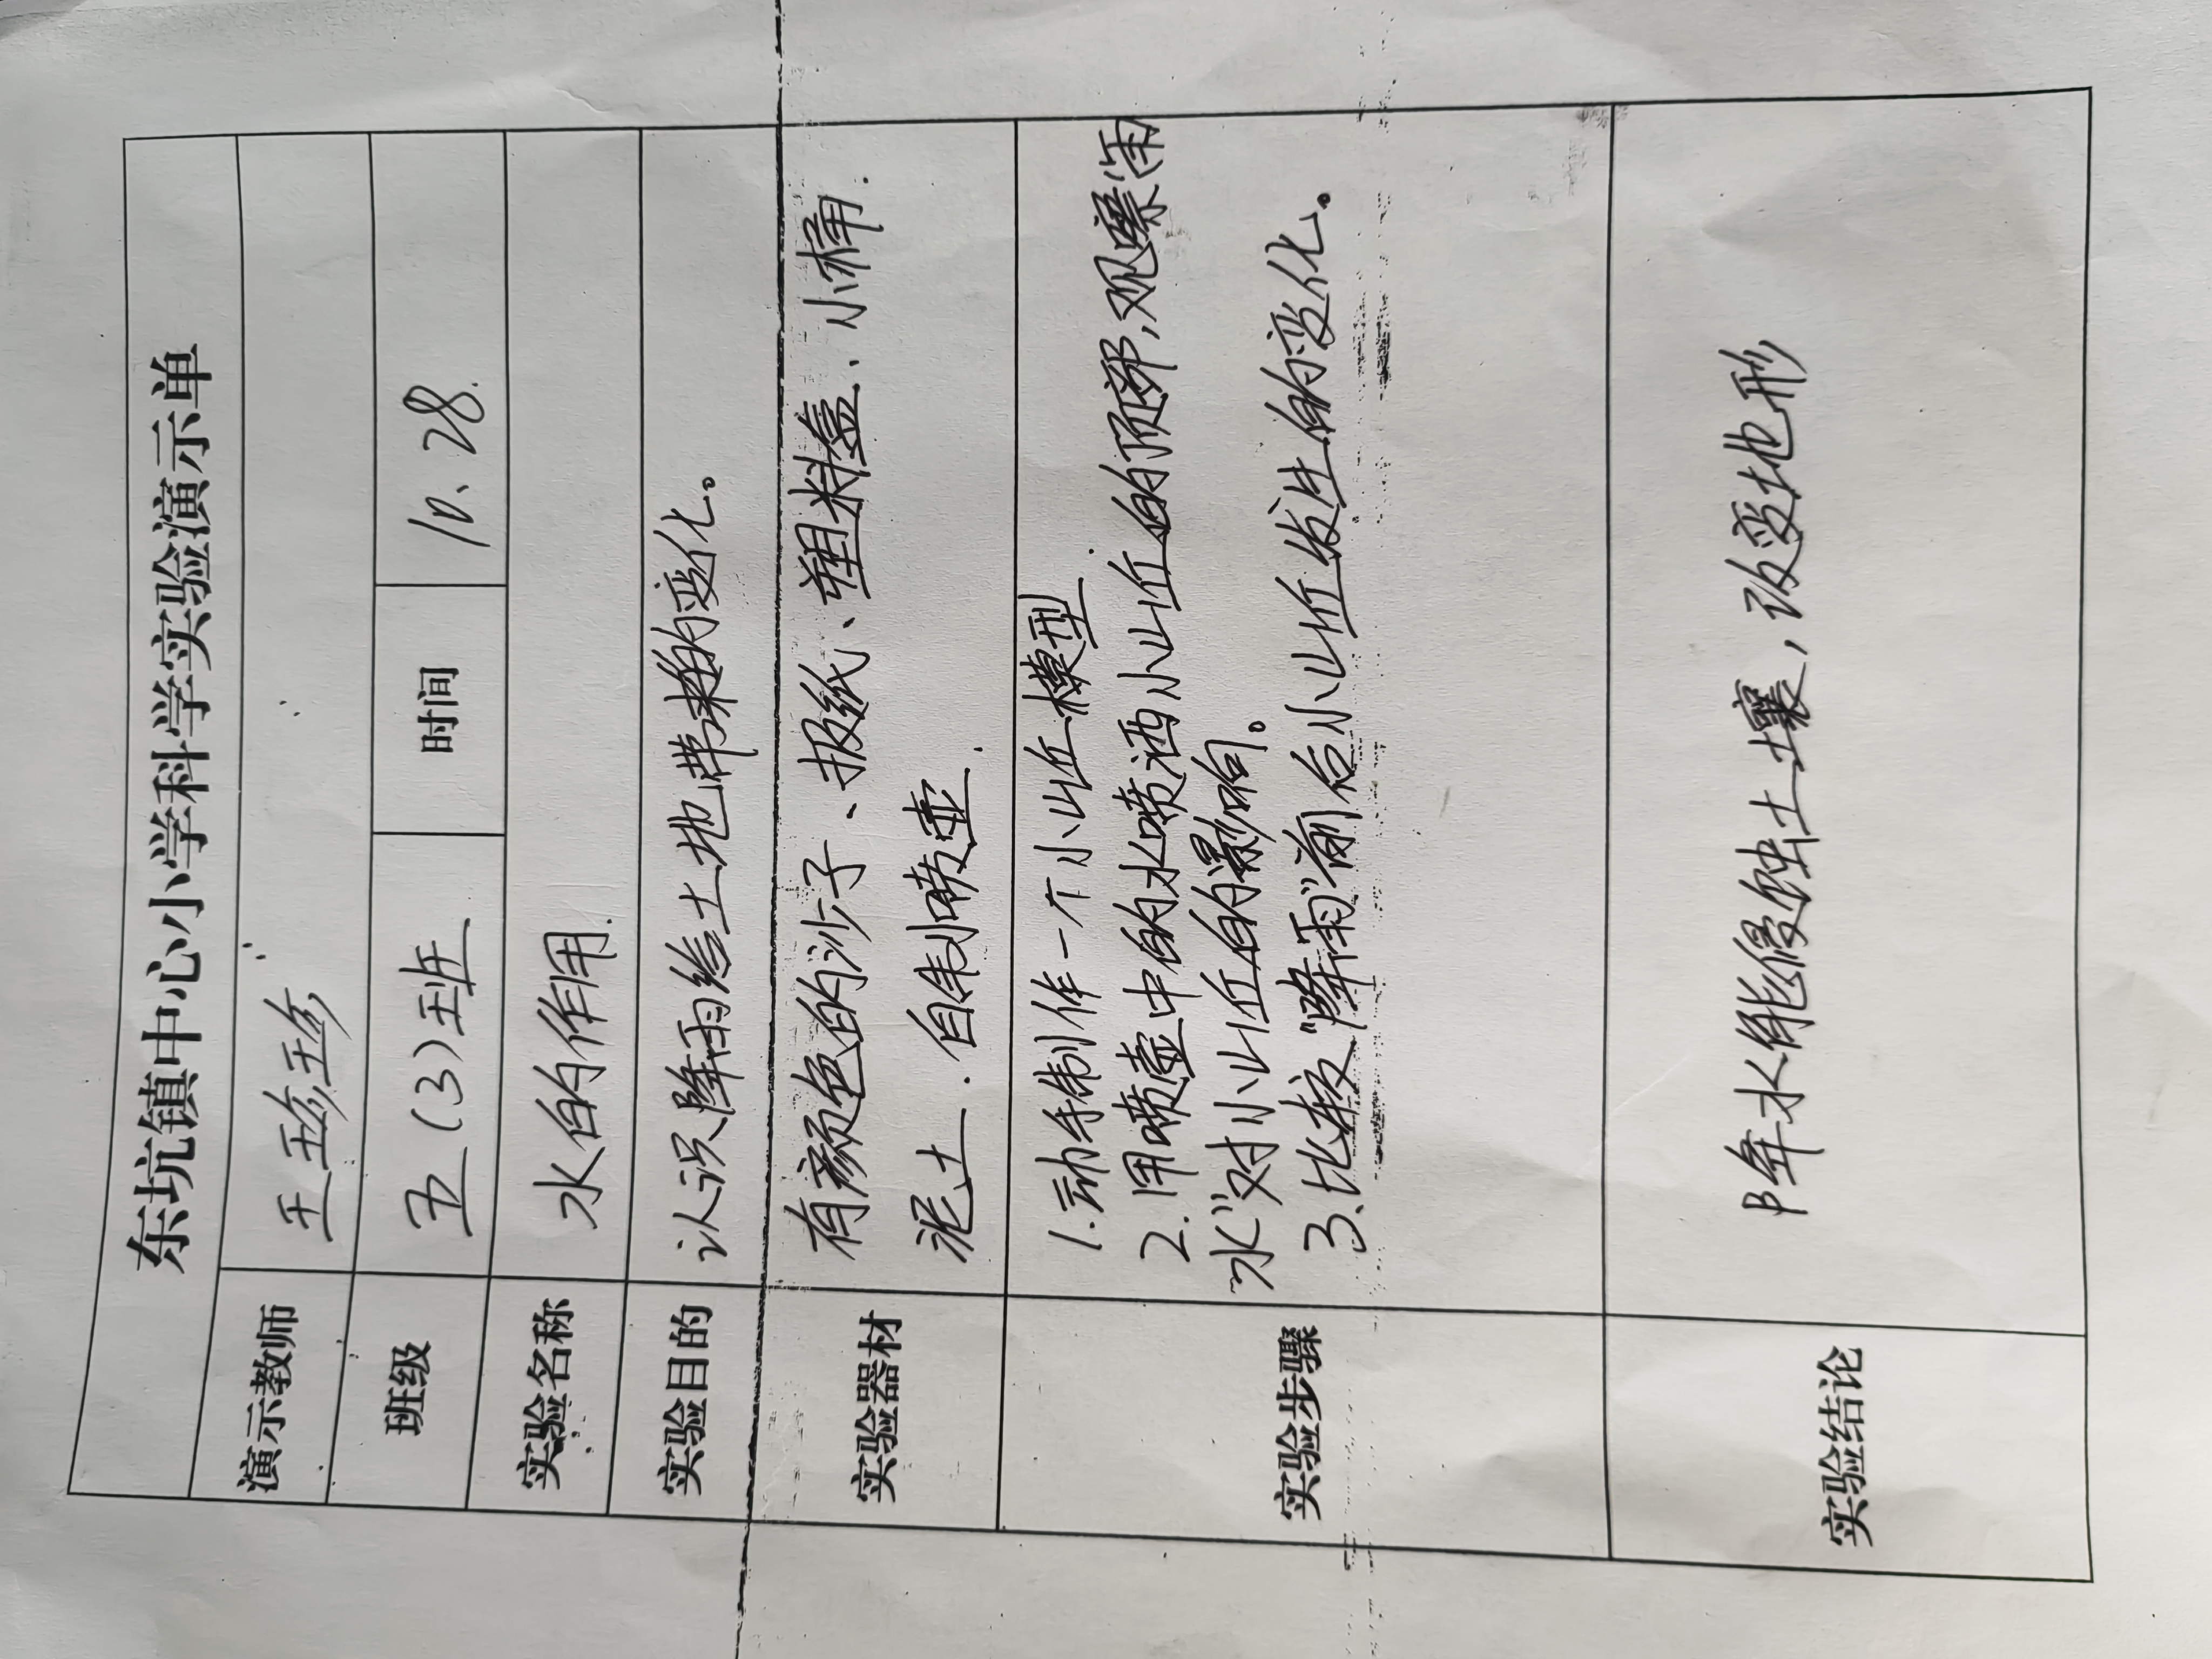 东坑镇中心小学科学实验演示单
演示教师 王珍珍
班级 五(3)班 时间 10、28.
实验名称 水的作用.
实验目的 认识降雨给土地带来的变化。
实验器材 有颜色的沙子、报纸、塑料盒、小桶.
泥土.自制喷壶.
实验步骤 1.动手制作一个小山丘模型.
2.用喷壶中的水喷洒小山丘的顶部,观察"雨
水"对小山丘的影响。
3、比较"降雨"前后小山丘发生的变化。
实验结论 降水能侵蚀土壤,改变地形